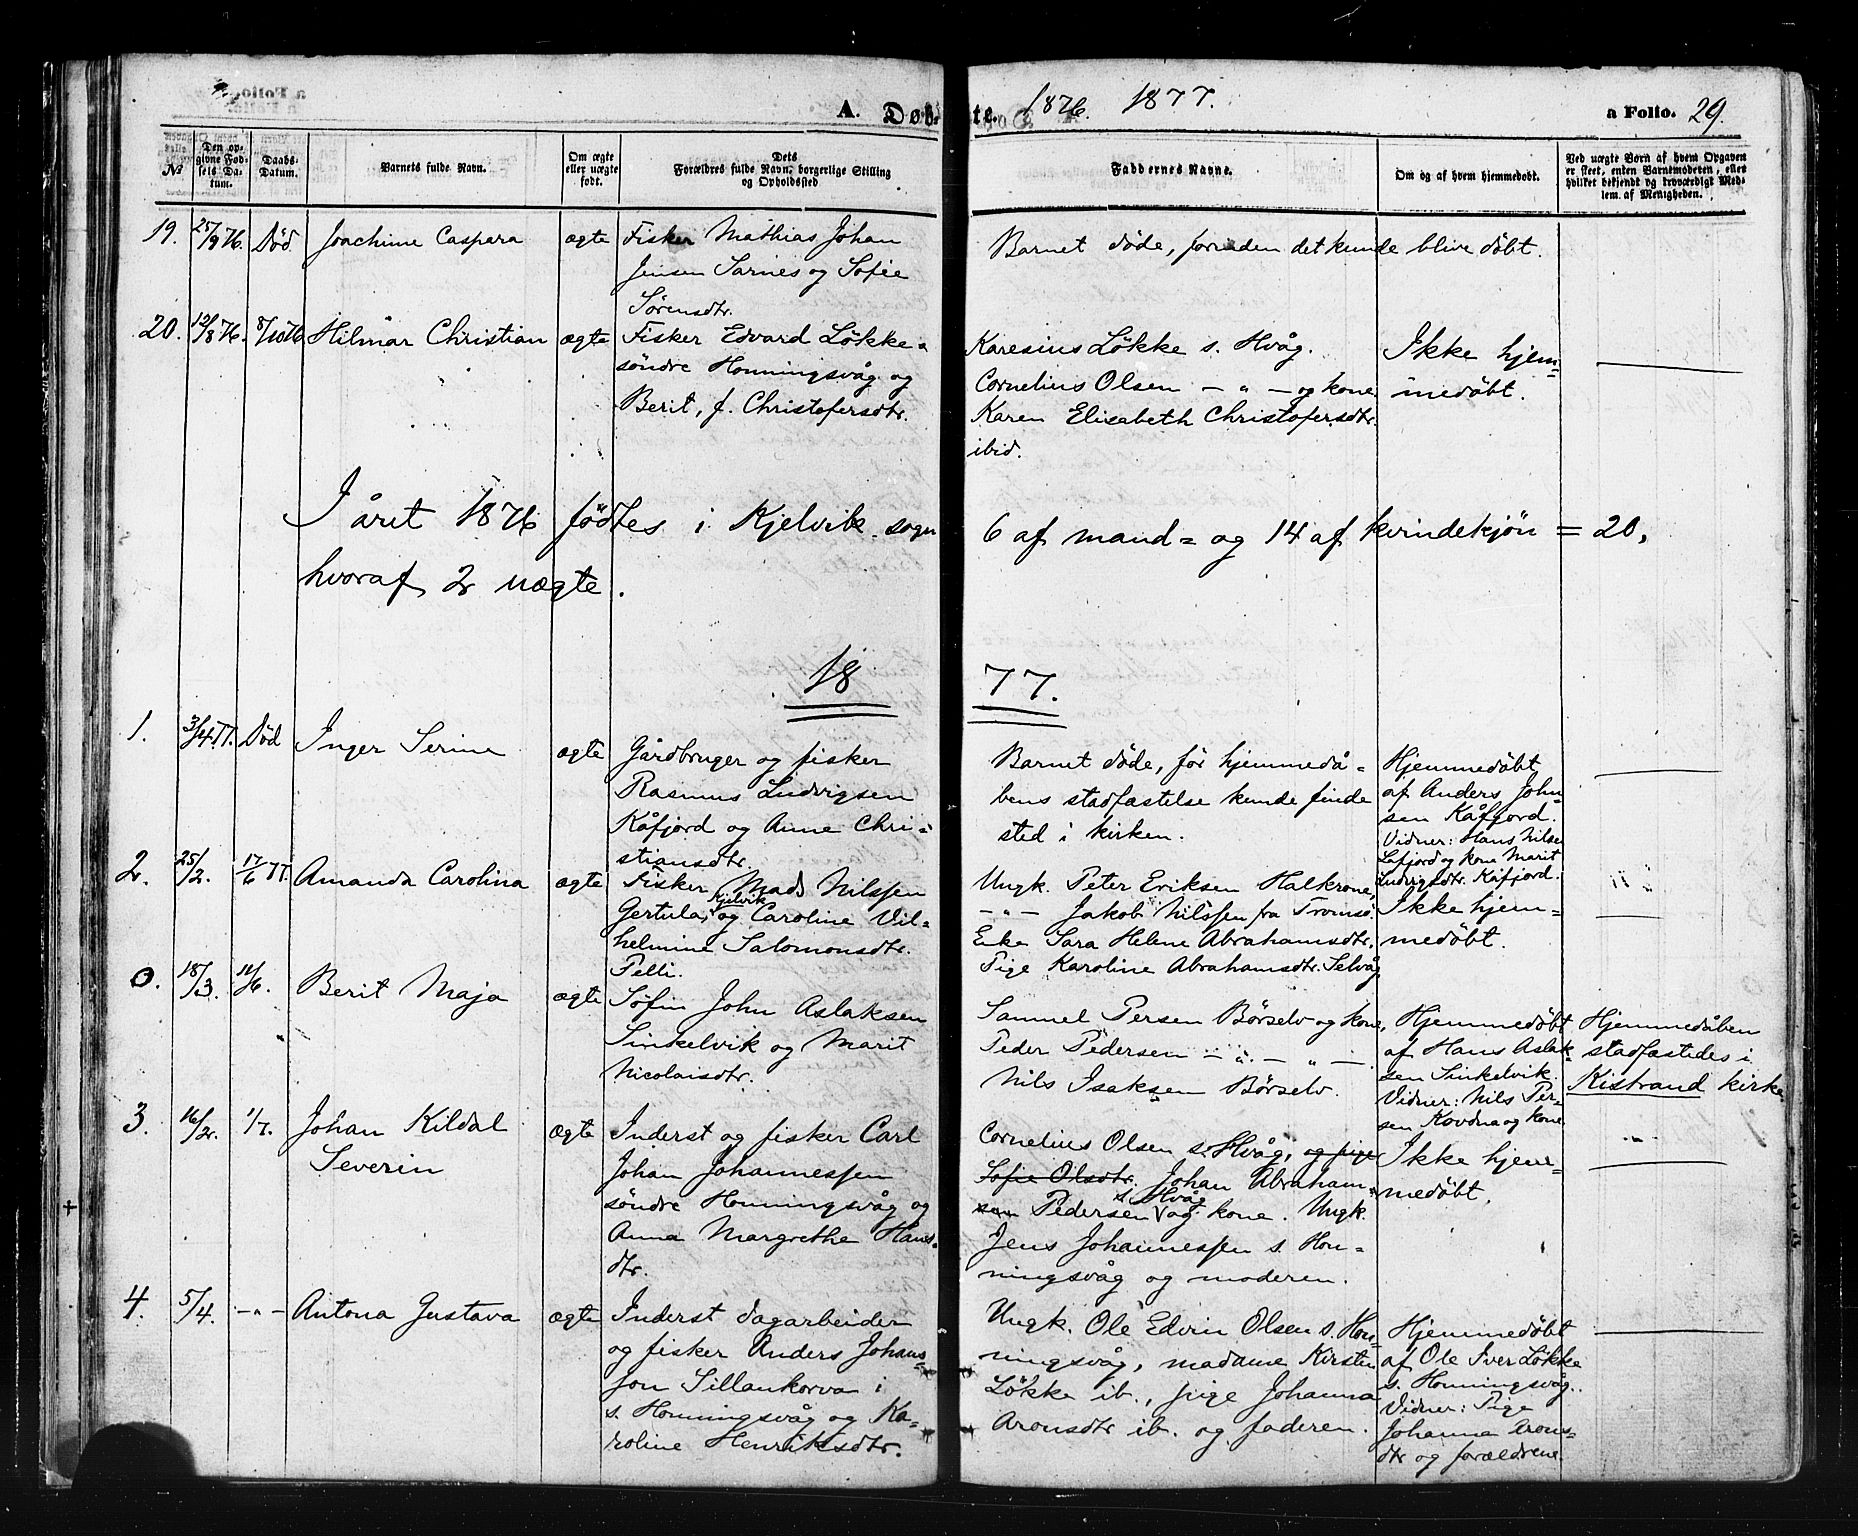 A. Døbte. 1876. 1877. a Folio. 29.
№
Den opgivne Fødsels Datum.
Daabs-Datum.
Barnets fulde Navn.
Om ægte eller uægte født.
Dets Forældres fulde Navn, borgerlige Stilling og Opholdssted
Faddernes Navne.
Om og af hvem hjemmedøbt.
Ved uægte Børn af hvem Opgaven er skeet, enten Barnemoderen, eller hvilket bekjendt og troværdigt Medlem af Menigheden.
19. 25/9 76. Död Joachime Caspara ægte Fisker Mathias Johan
Jensen Sarnes og Sofie
Sörensdtr.
Barnet döde, forinden det kunde blive döbt.
20. 12/8 76. 8/10 76 Hilmar Christian ægte Fisker Edvard Lökke-
söndre Honningsvåg og
Berit, f. Christofersdtr.
Karesius Lökke s. Hvåg.
Cornelius Olsen — " — og kone
Karen Elisabeth Christofersdtr.
ibid.
Ikke hjem=
medöbt.
I året 1876 födtes i Kjelvik sogn 6 af mand= og 14 af kvindekjön = 20,
hvoraf 2 uægte.
1877.
1. 3/4 77. Död Inger Serine ægte Gårdbruger og fisker
Rasmus Ludvigsen
Kåfjord og Anne Chri=
stiansdtr.
Barnet döde, för hjemmedå=
bens stadfæstelse kunde finde
sted i kirken.
Hjemmedöbt
af Anders John=
sen Kåfjord.
Vidner: Hans Nilsen
Lafjord og kone Marit
Ludvigsdtr. Kåfjord.
2. 25/2. 17/6 77. Amanda Carolina ægte Fisker Mads Nilssen
Gertula, Kjelvik og Caroline Vil=
helmine Salomonsdtr.
Pelli.
Ungk. Peter Eriksen Halkrone,
— " — Jakob Nilssen fra Tromsö.
Enke Sara Helene Abrahamsdtr.
Pige Karoline Abrahamsdtr. Selvåg
Ikke hjem=
medöbt.
0. 18/3. 11/6. Berit Maja ægte Söfin John Aslaksen
Sinkelvik og Marit
Nicolaisdtr.
Samuel Persen Börselv og kone,
Peder Pedersen — " — " —
Nils Isaksen Börselv.
Hjemmedöbt
af Hans Aslak=
sen Sinkelvik.
Vidner: Nils Per=
sen Kovdna og kone
Hjemmedåben
stadfæstedes i
Kistrand kirke
3. 16/2. 1/7. Johan Kildal
Severin
ægte Inderst og fisker Carl
Johan Johannessen
söndre Honningsvåg og
Anna Margrethe Hans=
dtr.
Cornelius Olsen s. Hvåg, og pige
Sofie Olsdtr. Johan Abraham=
sen Pedersen s. Hvåg og kone. Ungk.
Jens Johannessen s. Hon=
ningsvåg og moderen.
Ikke hjem=
medöbt.
4. 5/4. — " — Antona Gustava ægte Inderst dagarbeider
og fisker Anders Johans=
son Sillankorva i
s. Honningsvåg og Ka=
roline Henriksdtr.
Ungk. Ole Edvin Olsen s. Hon=
ningsvåg, madame Kirsten
Lökke ib., pige Johanna
Aronsdtr ib. og faderen.
Hjemmedöbt
af Ole Iver Lökke
s. Honningsvåg.
Vidner: Pige
Johanna Arons=
dtr og forældrene.